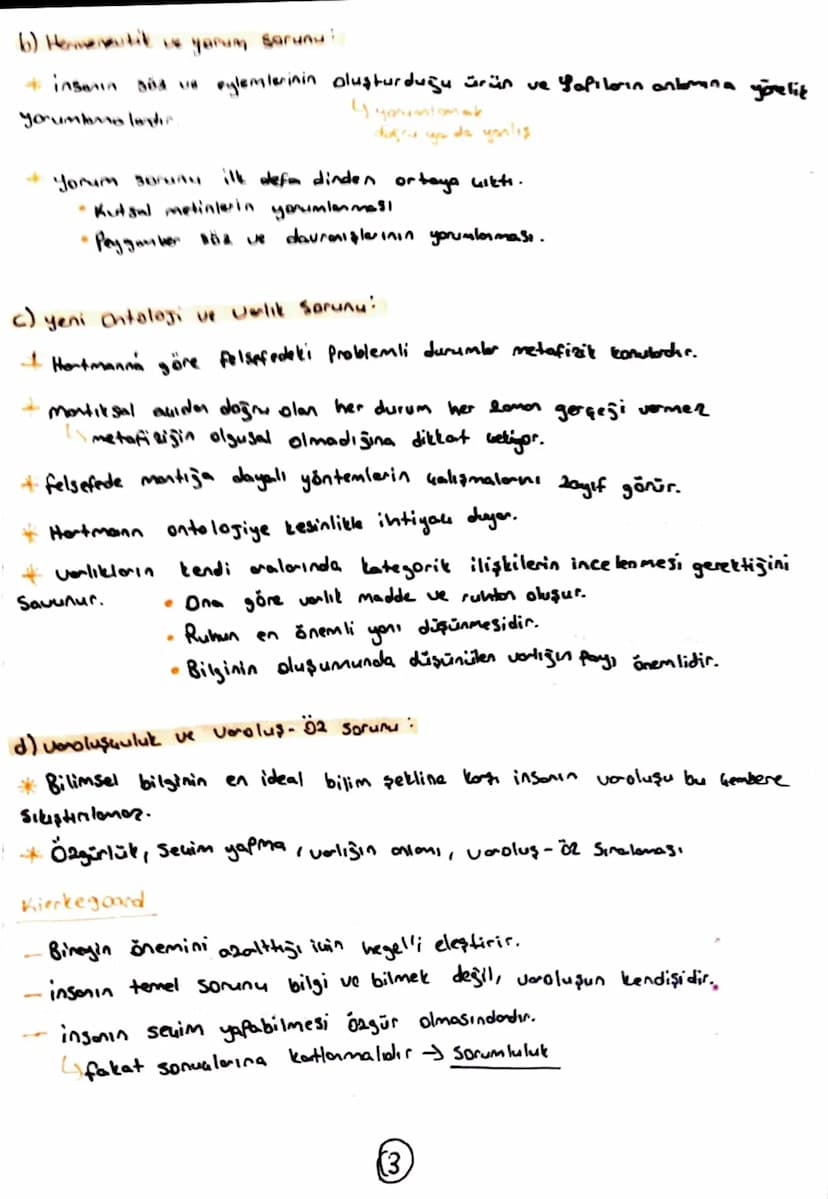 b) Hermeneutik ve yorum sorunu:
+ insanın söz ve eylemlerinin oluşturduğu ürün ve yapıların anlamına yönelik
↳ yorumlamak
yorumlamalardır.
doğru ya da yanlış
+ Yorum sorunu ilk defa dinden ortaya çıktı.
• Kutsal metinlerin yorumlanması
• Peygamber söz ve davranışlarının yorumlanması.
c) yeni ontoloji ve varlık sorunu:
+ Hartmanna göre felsefedeki problemli durumlar metafizik konulardır.
+ Mantıksal açıdan doğru olan her durum her zaman gerçeği vermez
↳ metafiziğin olgusal olmadığına dikkat çekiyor.
+ felsefede mantığa dayalı yöntemlerin çalışmalarını zayıf görür.
+ Hartmann ontolojiye kesinlikle ihtiyacı duyar.
+ varlıkların kendi aralarında kategorik ilişkilerin incelenmesi gerektiğini
Savunur.
• Ona göre varlık madde ve ruhtan oluşur.
• Ruhun en önemli yanı düşünmesidir.
• Bilginin oluşumunda düşünülen varlığın payı önemlidir.
d) varoluşçuluk ve varoluş-öz sorunu:
* Bilimsel bilginin en ideal bilim şekline karşı insanın varoluşu bu çembere
Sıkıştırılamaz.
* Özgürlük, seçim yapma, varlığın anlamı, varoluş-öz sıralaması
Kierkegaard
- Bireyin önemini azalttığı için hegel'i eleştirir.
- insanın temel sorunu bilgi ve bilmek değil, varoluşun kendisidir.
- insanın seçim yapabilmesi özgür olmasındandır.
↳ fakat sonuçlarına katlanmalıdır → sorumluluk
3